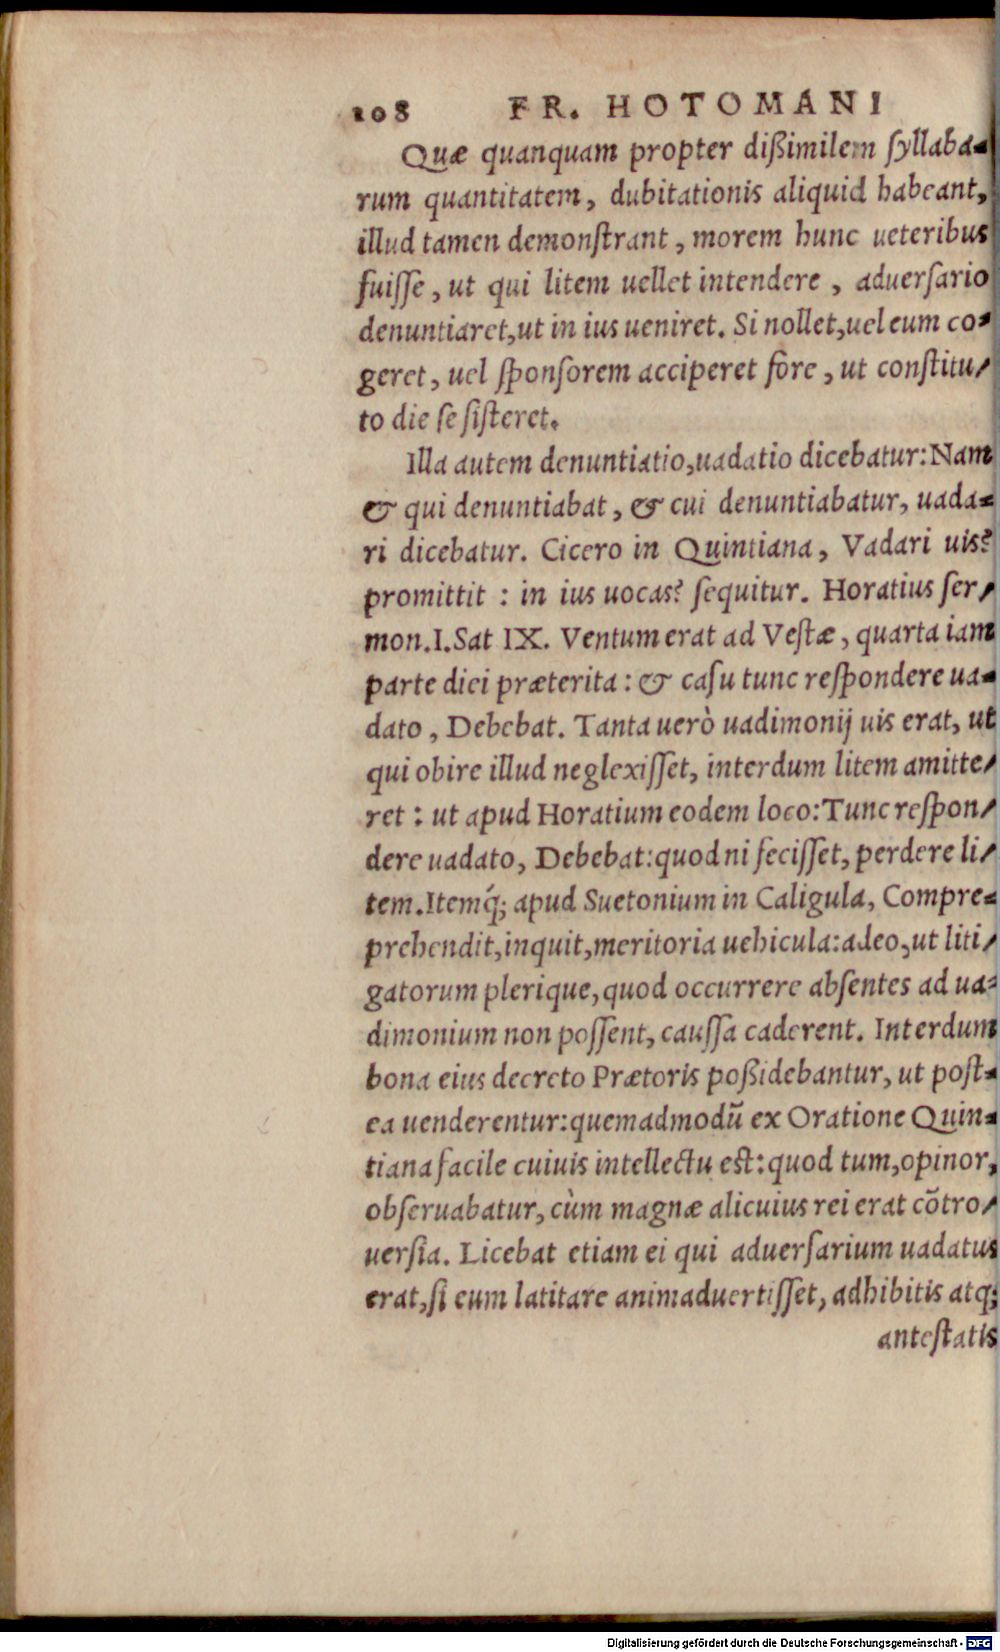 108 FR. HOTOMANI
Quæ quanquam propter dißimilem ſyllaba-
rum quantitatem, dubitationis aliquid habeant,
illud tamen demonſtrant, morem hunc ueteribus
fuiſſe, ut qui litem uellet intendere, aduerſario
denuntiaret, ut in ius ueniret. Si nollet, uel eum co-
geret, uel ſponſorem acciperet fore, ut conſtitu-
to die ſe ſiſteret.
Illa autem denuntiatio, uadatio dicebatur: Nam
& qui denuntiabat, & cui denuntiabatur, uada-
ri dicebatur. Cicero in Quintiana, Vadari uis?
promittit : in ius uocas? ſequitur. Horatius ſer-
mon. I. Sat IX. Ventum erat ad Veſtæ, quarta iam
parte diei præterita : & caſu tunc reſpondere ua-
dato, Debebat. Tanta uerò uadimonij uis erat, ut
qui obire illud neglexiſſet, interdum litem amitte-
ret : ut apud Horatium eodem loco: Tunc reſpon-
dere uadato, Debebat: quod ni feciſſet, perdere li-
tem. Itemq́; apud Suetonium in Caligula, Compre-
prehendit, inquit, meritoria uehicula: adeo, ut liti-
gatorum plerique, quod occurrere abſentes ad ua-
dimonium non poſſent, cauſſa caderent. Interdum
bona eius decreto Prætoris poßidebantur, ut poſt-
ea uenderentur: quemadmodū ex Oratione Quin-
tiana facile cuiuis intellectu eſt: quod tum, opinor,
obſeruabatur, cùm magnæ alicuius rei erat cōtro-
uerſia. Licebat etiam ei qui aduerſarium uadatus
erat, ſi eum latitare animaduertiſſet, adhibitis atq;
anteſtatis
Digitalisierung gefördert durch die Deutsche Forschungsgemeinschaft - DFG